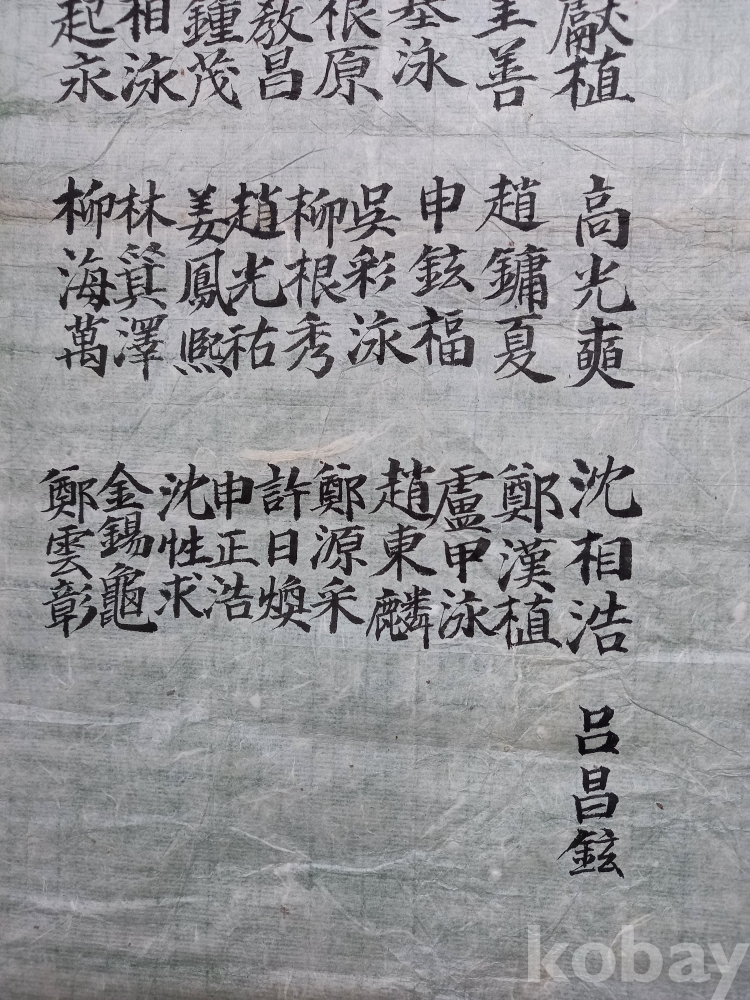 獻植
高光奭
沈相浩
呂昌鉉
善
趙鏞夏
鄭漢植
基泳
申鉉福
盧甲泳
根原
吳彩泳
趙東麟
敎昌
柳根秀
鄭源采
鍾茂
趙光祐
許日煥
相泳
姜鳳熙
申正浩
起永
林箕澤
沈性求
柳海萬
金錫龜
鄭雲彰
kobay